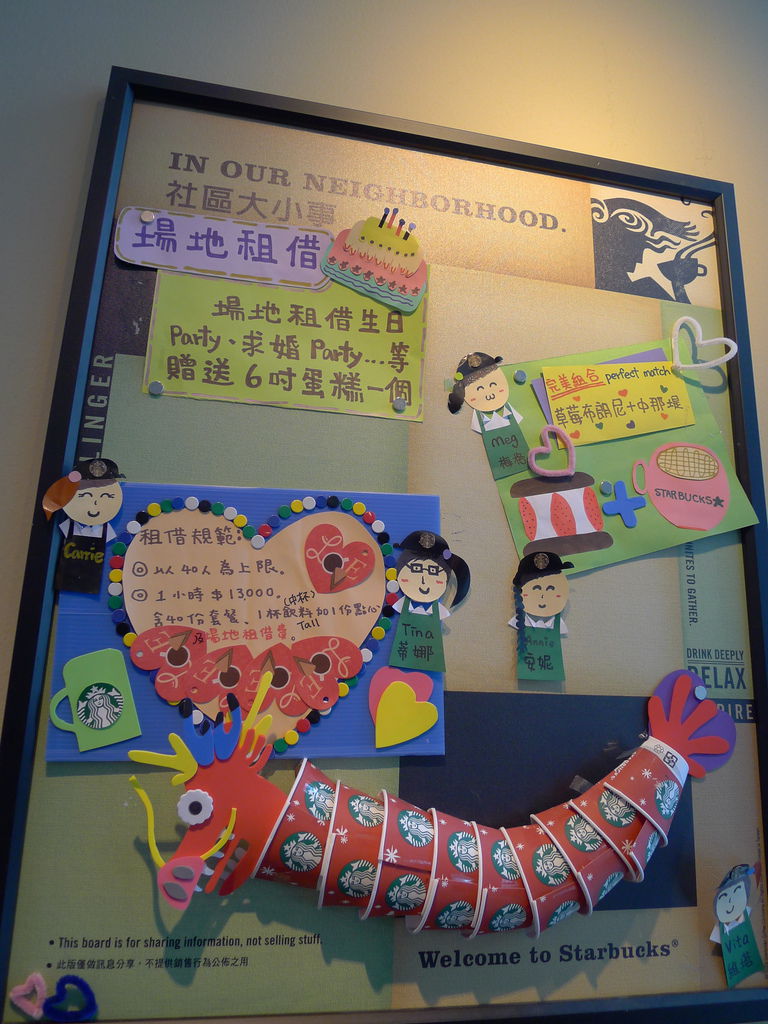 IN OUR NEIGHBORHOOD.
社區大小事
場地租借
場地租借生日
Party、求婚 Party....等
贈送 6 吋蛋糕一個
LINGER
完美組合 perfect match
草莓布朗尼+中那堤
Meg
梅格
STARBUCKS
Carrie
租借規範:
◎ 以 40人 為上限。
◎ 1 小時 $ 13000。
(中杯)
含40份套餐、1杯飲料加1份點心
Tall
及場地租借費。
Tina
蒂娜
Annie
安妮
NITES TO GATHER.
DRINK DEEPLY
RELAX
PIRE
• This board is for sharing information, not selling stuff.
• 此版僅做訊息分享,不提供銷售行為公佈之用
Welcome to Starbucks®
Vita
維塔